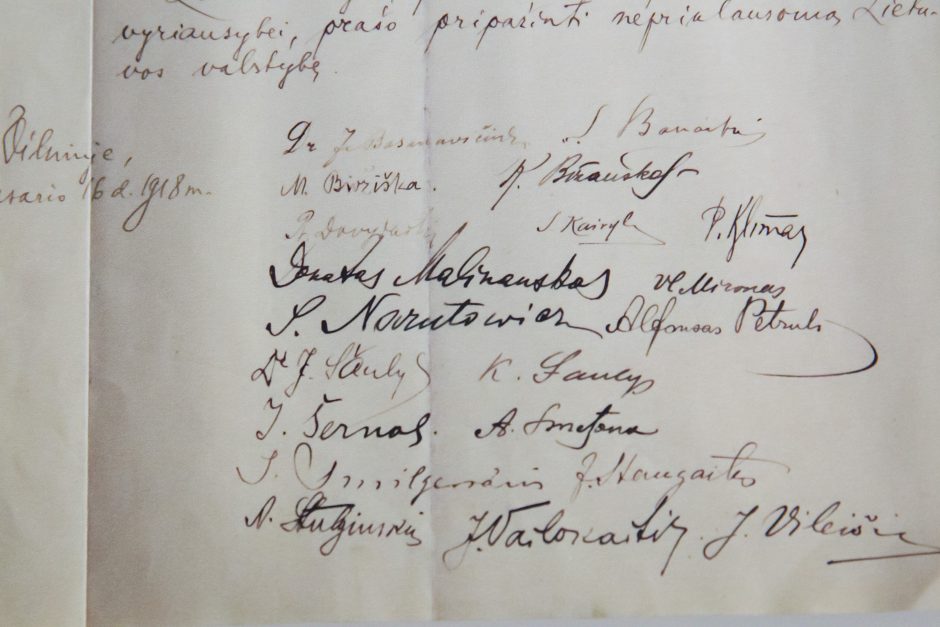 vyriausybei, prašo pripažinti nepriklausomą Lietu-
vos valstybę.
Vilniuje,
vasario 16 d. 1918 m.
Dr J. Basanavičius S. Banaitis
M. Biržiška. K. Bizauskas
Pr. Dovydaitis S Kairys P. Klimas
Donatas Malinauskas Vl. Mironas
S. Narutowicz Alfonsas Petrulis
Dr J. Šaulys K. Šaulys
J. Šernas. A. Smetona
J. Smilgevičius J. Staugaitis
A. Stulginskis J. Vailokaitis. J. Vileišis